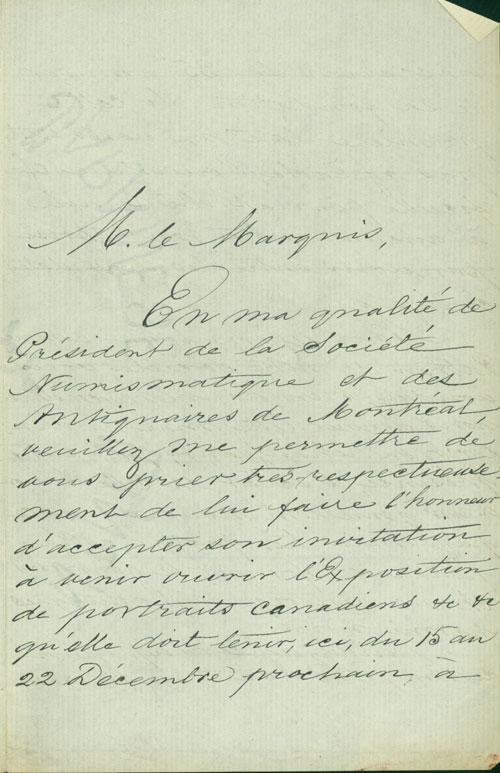 M. le Marquis,
En ma qualité de
Président de la Société
Numismatique et des
Antiquaires de Montréal
veuillez me permettre de
vous prier très-respectueuse-
ment de lui faire l'honneur
d'accepter son invitation
à venir ouvrir l'Exposition
de portraits canadiens &c &c
qu'elle doit tenir, ici, du 15 au
22 Décembre prochain, à